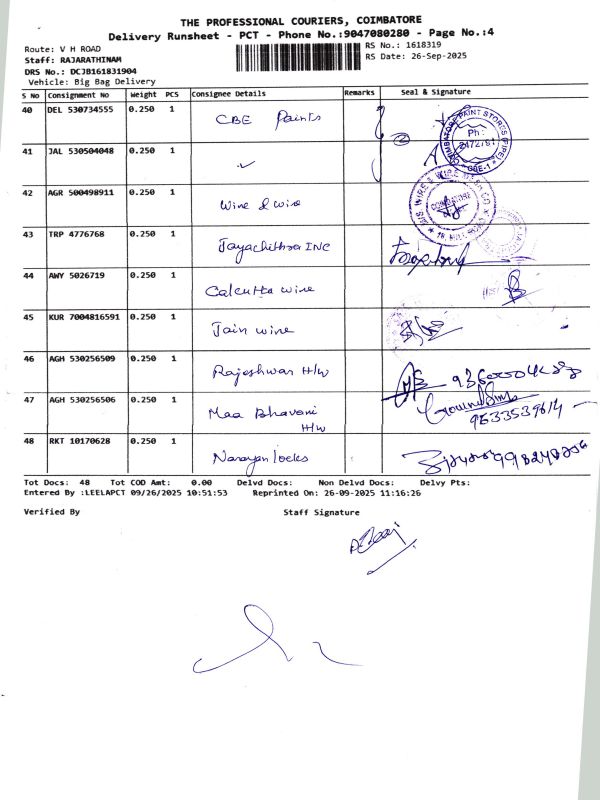 THE PROFESSIONAL COURIERS, COIMBATORE
Delivery Runsheet - PCT - Phone No.:9047080280 - Page No.:4
Route: V H ROAD
RS No.: 1618319
Staff: RAJARATHINAM
RS Date: 26-Sep-2025
DRS No.: DCJB161831904
Vehicle: Big Bag Delivery
S No Consignment No Weight PCS Consignee Details Remarks Seal & Signature
40 DEL 530734555 0.250 1 CBE Paints
41 JAL 530504048 0.250 1 ✓
42 AGR 500498911 0.250 1 Wire & wire
43 TRP 4776768 0.250 1 Jayachithra INC
44 AWY 5026719 0.250 1 Calcutta wire
45 KUR 7004816591 0.250 1 Jain wire
46 AGH 530256509 0.250 1 Rajeshwari H/w
47 AGH 530256506 0.250 1 Maa Bhavani H/w 9533539614
48 RKT 10170628 0.250 1 Narayan locks
Tot Docs: 48 Tot COD Amt: 0.00 Delvd Docs: Non Delvd Docs: Delvy Pts:
Entered By :LEELAPCT 09/26/2025 10:51:53 Reprinted On: 26-09-2025 11:16:26
Verified By Staff Signature